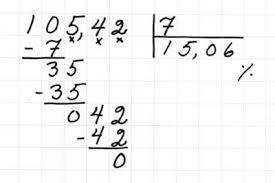 105,42 | 7
- 7 | 15,06
35
- 35
0 42
- 42
0